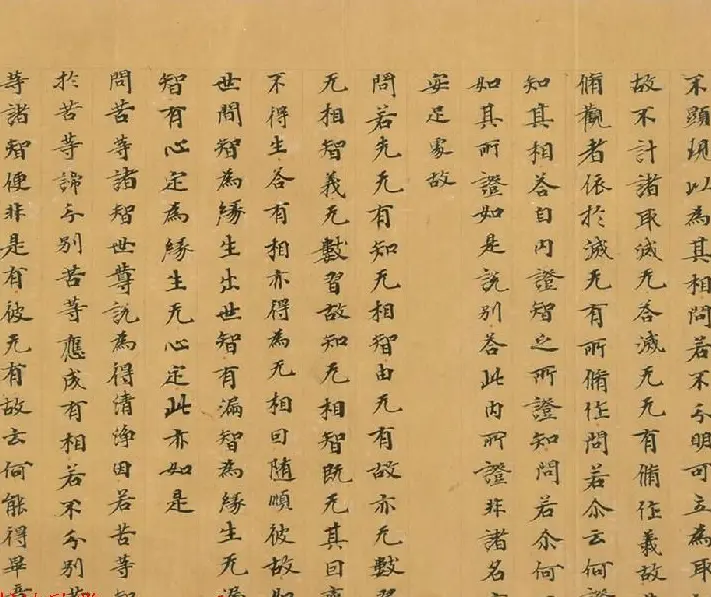 不顯現以為其相問若不分明可立為取
故不計諸取滅无答滅无无有脩作義故
脩觀者依於滅无有所脩作問若尒云何證
知其相答自内證智之所證知問若尒何
如其所證如是說別答此内所證非諸名
安足處故
問若先无有知无相智由无有故亦无數習
无相智義无數習故知无相智既无其因
不得生答有相亦得為无相因随順彼故如
世間智為緣生出世智有漏智為緣生无漏
智有心定為緣生无心定此亦如是
問苦等諸智世尊說為得清淨因若苦等智
於苦等諦分別苦等應成有相若不分別苦
等諸智便非是有彼无有故云何能得畢竟